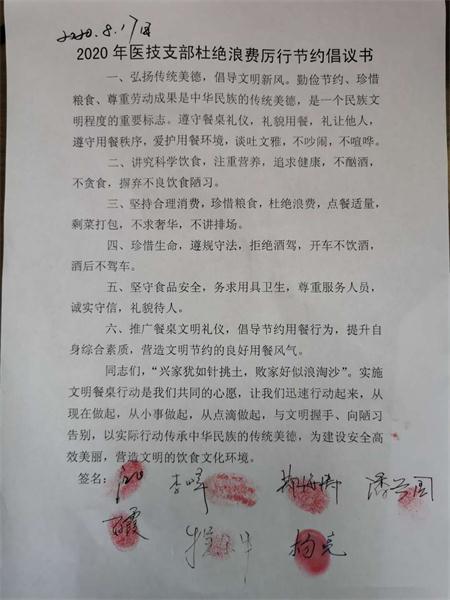 2020.8.17日
2020年医技支部杜绝浪费厉行节约倡议书
一、弘扬传统美德，倡导文明新风。勤俭节约、珍惜
粮食、尊重劳动成果是中华民族的传统美德，是一个民族文
明程度的重要标志。遵守餐桌礼仪，礼貌用餐，礼让他人，
遵守用餐秩序，爱护用餐环境，谈吐文雅，不吵闹，不喧哗。
二、讲究科学饮食，注重营养，追求健康，不酗酒，
不贪食，摒弃不良饮食陋习。
三、坚持合理消费，珍惜粮食，杜绝浪费，点餐适量，
剩菜打包，不求奢华，不讲排场。
四、珍惜生命，遵规守法，拒绝酒驾，开车不饮酒，
酒后不驾车。
五、坚守食品安全，务求用具卫生，尊重服务人员，
诚实守信，礼貌待人。
六、推广餐桌文明礼仪，倡导节约用餐行为，提升自
身综合素质，营造文明节约的良好用餐风气。
同志们，“兴家犹如针挑土，败家好似浪淘沙”。实施
文明餐桌行动是我们共同的心愿，让我们迅速行动起来，从
现在做起，从小事做起，从点滴做起，与文明握手、向陋习
告别，以实际行动传承中华民族的传统美德，为建设安全高
效美丽，营造文明的饮食文化环境。
签名：李峰
杨亮